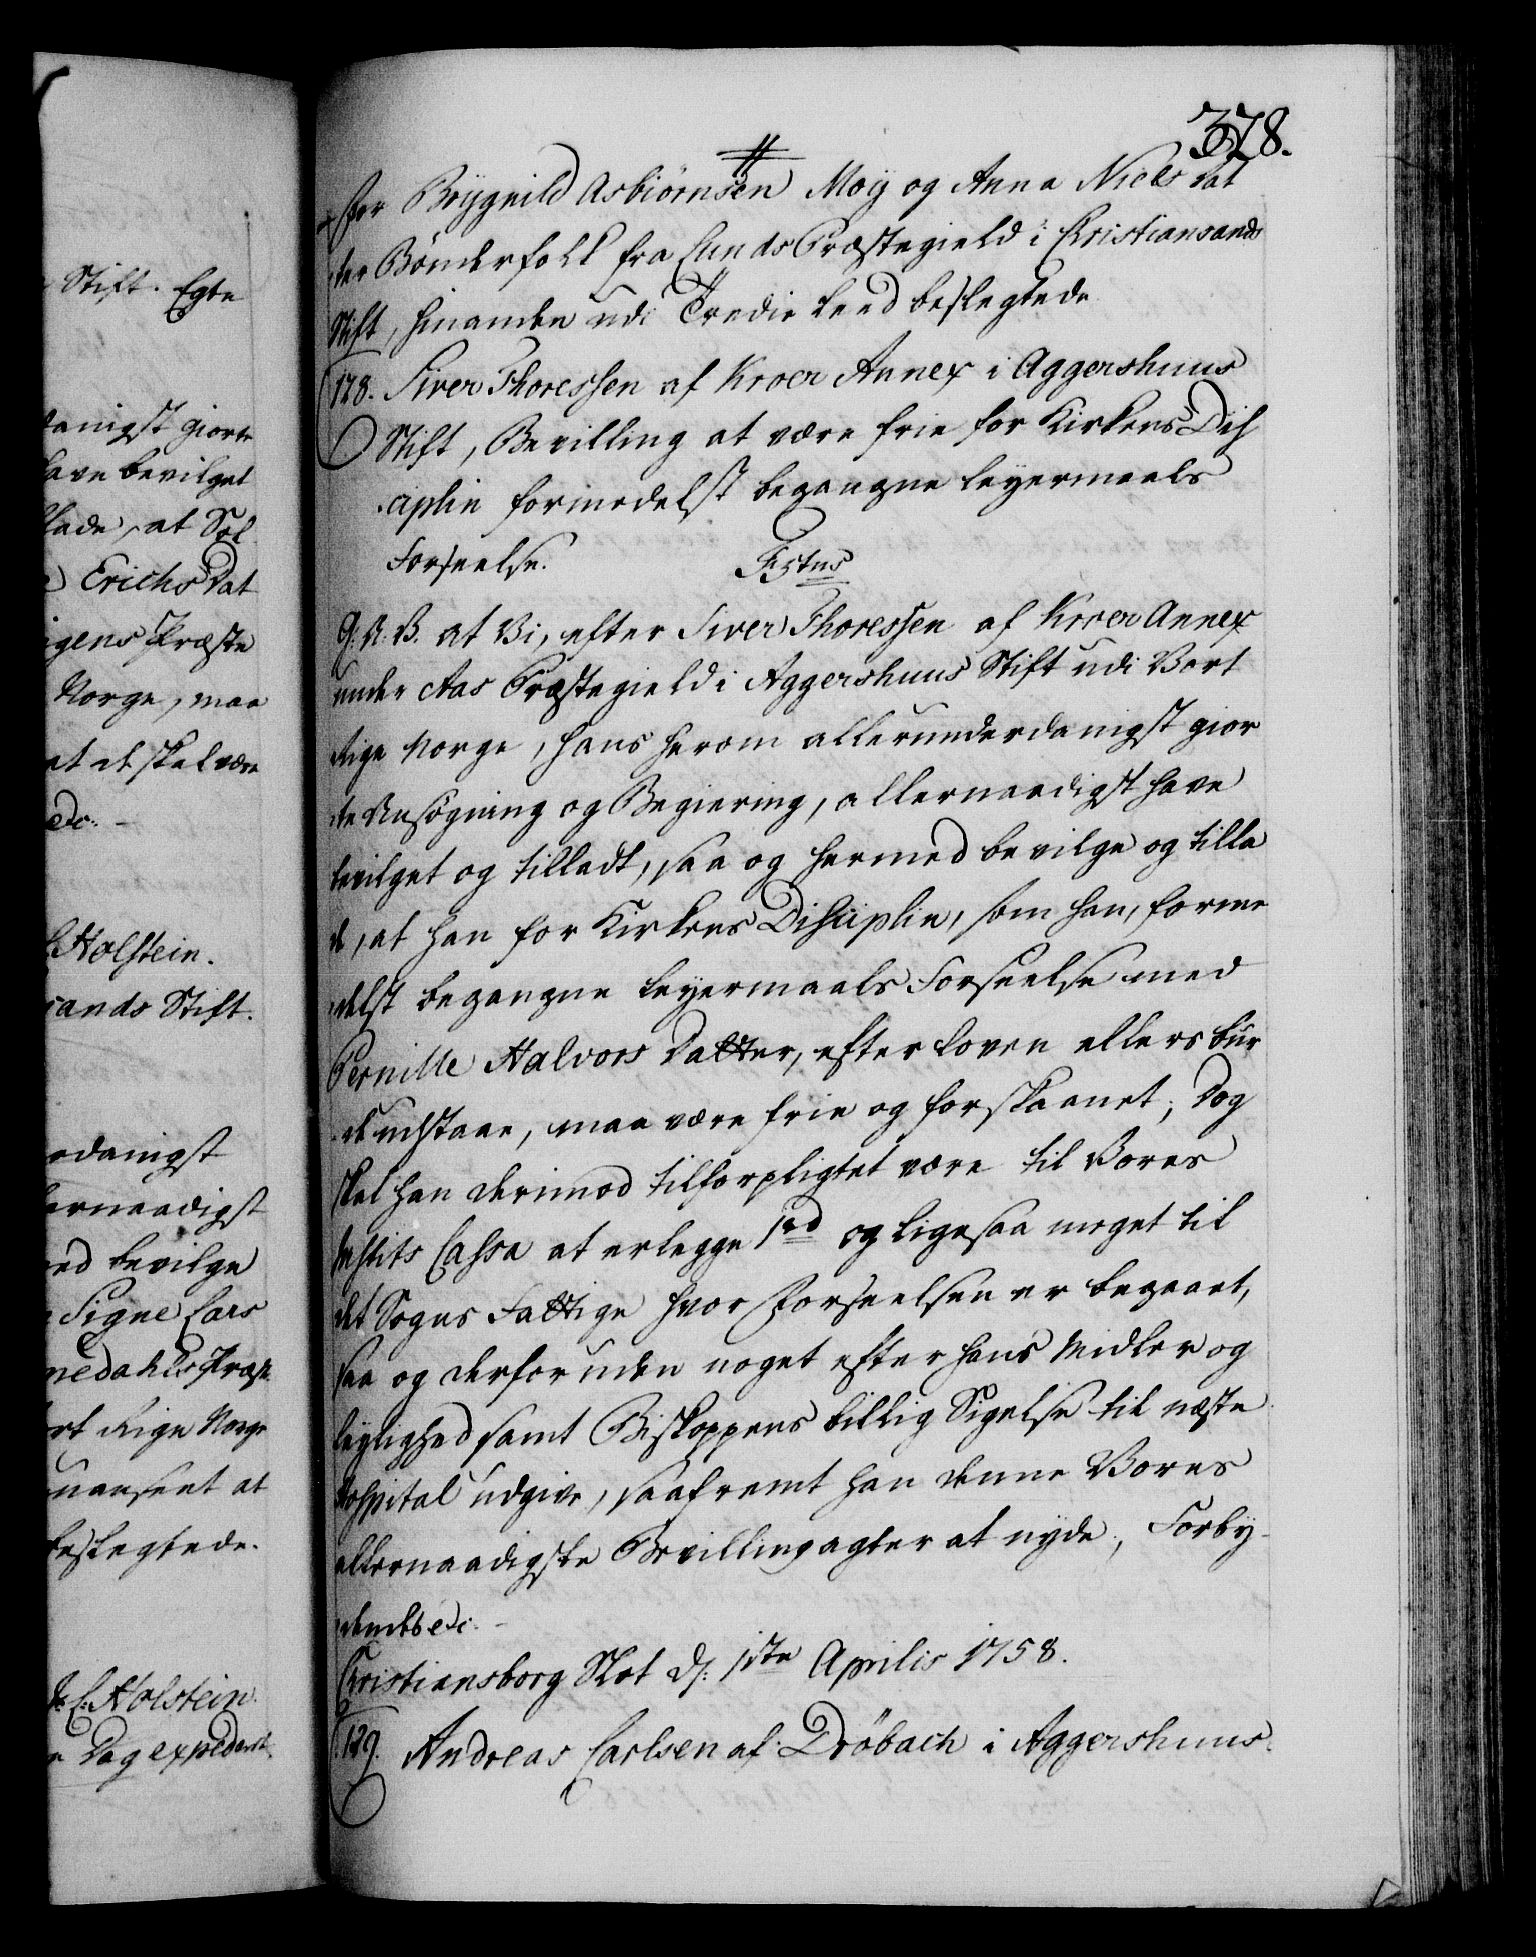 378.
for Brygnild Asbiörnsen Moÿ og Anna Niels Dat
ter Bønderfolk fra Lunds Præstegield i Christiansands
Stift, hinanden udi Tredie Leed beslegtede
128. Siver Thoressen af Kroer Annex i Aggershuus
Stift, Bevilling at være frie for Kirkens Dis
ciplin formedelst begangne Leyermaals
Forseelse. F 5tus
G. A. V. at Vi, efter Siver Thoressen af Kroer Annex
under Aas Præstegield i Aggershuus Stift udi Vort
Rige Norge, hans herom allerunderdanigst gior
te Ansøgning og Begiering, allernaadigst have
bevilget og tilladt, saa og hermed bevilge og tilla
de, at han for Kirkens Disciplin, som han, forme
delst begangne Leyermaals Forseelse med
Pernille Halvors Datter, efter Loven ellers bur
de udstaae, maa være frie og forskaanet; Dog
skal han derimod tilforpligtet være til Vores
Justits Cassa at erlegge 1 rd og ligesaa meget til
det Sogns Fattige hvor Forseelsen er begaaet,
saa og derforuden noget efter hans Midler og
leylighed samt Biskoppens billig Sigelse til næste
Hospital udgive, saafremt han denne Vores
allernaadigste Bevilling agter at nyde; Forby-
dendes etc.
Christiansborg Slot d. 1ste Aprilis 1758.
129. Andreas Carlsen af Dröbach i Aggershuus
Stift. Egte
danigst giorte
have bevilget
lade, at Sol
Erichs Dat
igens Præste
Norge, maa
at et skal være
etc. -
Holstein.
sands Stift.
erdanigst
lernaadigst
med bevilge
Signe Lars
nedahls Præste
ort Rige Norge
uanseet at
beslegtede.
L. Holstein.
Dag expederet.